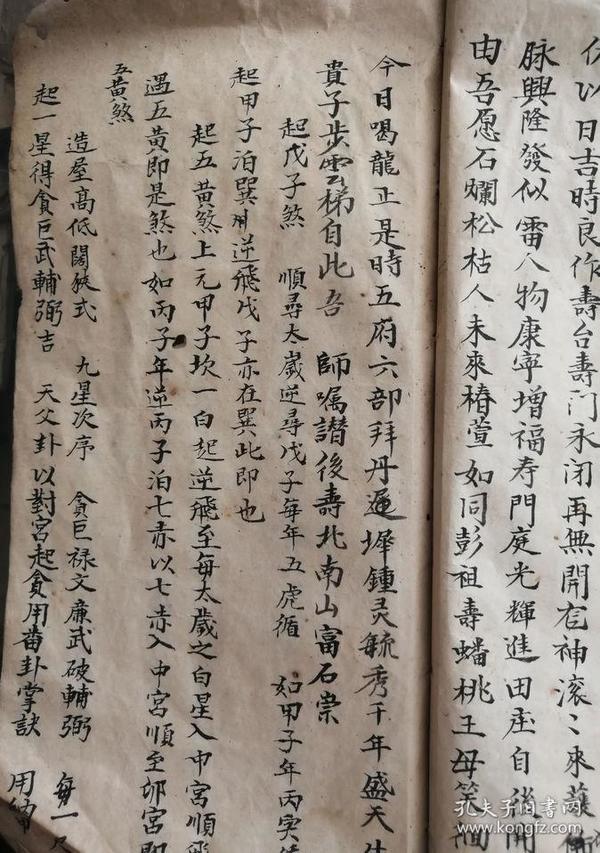 伏以日吉時良作壽台壽門永闭再無開宅神滚〻來護
脉興隆發似雷人物康寧增福寿門庭光輝進田庄自後開
由吾愿石爛松枯人未來椿萱如同彭祖壽蟠桃王母笑
今日喝龍正是時五府六部拜丹墀鍾灵毓秀千年盛天生
貴子步雲梯自此吾 師嘱讃後壽北南山富石崇
起戊子煞 順尋太歲逆尋戊子每年五虎循 如甲子年丙寅
起甲子泊巽州逆飛戊子亦在巽此即也
起五黄煞上元甲子坎一白起逆飛至每太歲之白星入中宮順飛
遇五黄即是煞也如丙子年逆丙子泊七赤以七赤入中宮順至邜宮即
五黄煞
造屋高低闊狹式 九星次序 貪巨禄文廉武破輔弼 每一尺
起一星得貪巨武輔弼吉 天父卦以對宮起貪用畨卦掌訣 用
孔夫子旧書网
www.kongfz.com